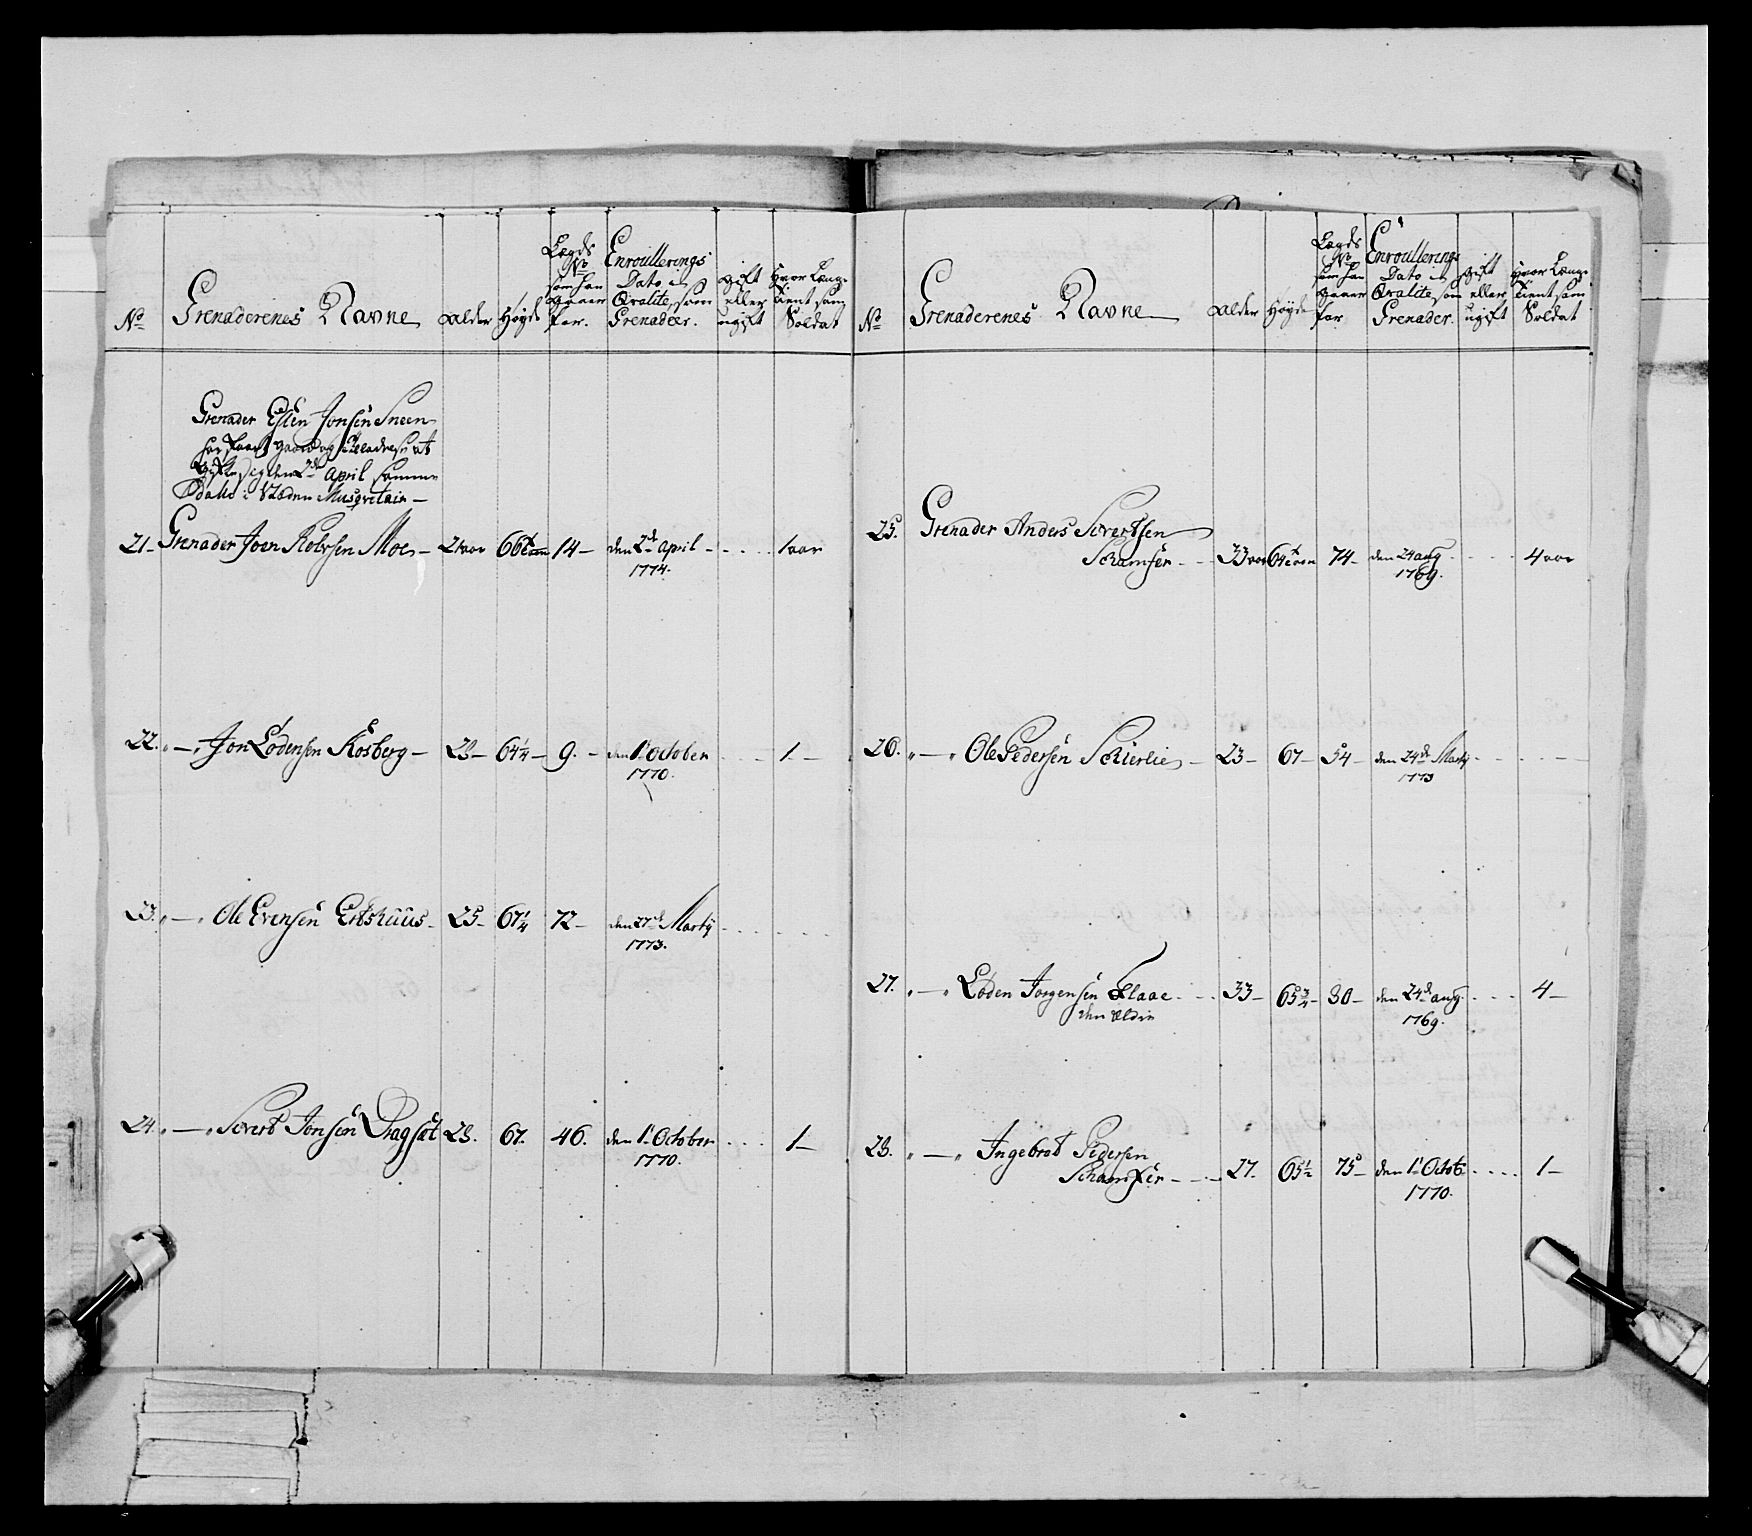 No
Grenaderenes Navne
Alder
Høyde
Lægds
No
som han
gaaer
for.
Enroullerings
Dato in
Qvalite som
Grenadeer.
gift
eller
ugift
Hvor Længe
tient som
Soldat
Grenader Esten Jonsen Sneen
den 2de April samme
Musqvetair —
21 — Grenader Joen Rolvsen Moe — 21 aar 66 14 — den 2de April - - - - 1 aar
1774.
22. „ — „ Jon Lodensen Kosberg — 28 — 64¼ — 9. — den 1t October - - - 1 —
1770.
23. „ — „ Ole Evensen Ertshuus — 25 — 67¼ 72 — den 27de Martij - - - -
1773.
24. „ — „ Sivert Jonsen Dragset 28. 67. 46. den 1t October - - - 1 —
1770.
No
Grenaderenes Navne
Alder
Høyde
Lægds
No
som han
gaaer
for
Enroullerings
Dato in
Qvalite som
Grenader.
gift
eller
ugift
Hvor Længe
tient som
Soldat
25. Grenader Anders Sivertsen
Schamfer - - - 33 aar 64 74 — den 24 aug - - - - 4 aar
1769.
26. „ — „ Ole Pedersen Schierlie — 23 — 67 — 54 — den 24de Martij - - - -
1773
27. „ — „ Loden Jorgensen Flaae - - - 33 — 65¾ — 80 — den 24de aug. - - - 4 —
den Eldre 1769.
28. „ — „ Ingebrot Pedersen
Schamfer - - - 27. 65½ 75 — den 1t Octob: - - - - 1 —
1770.